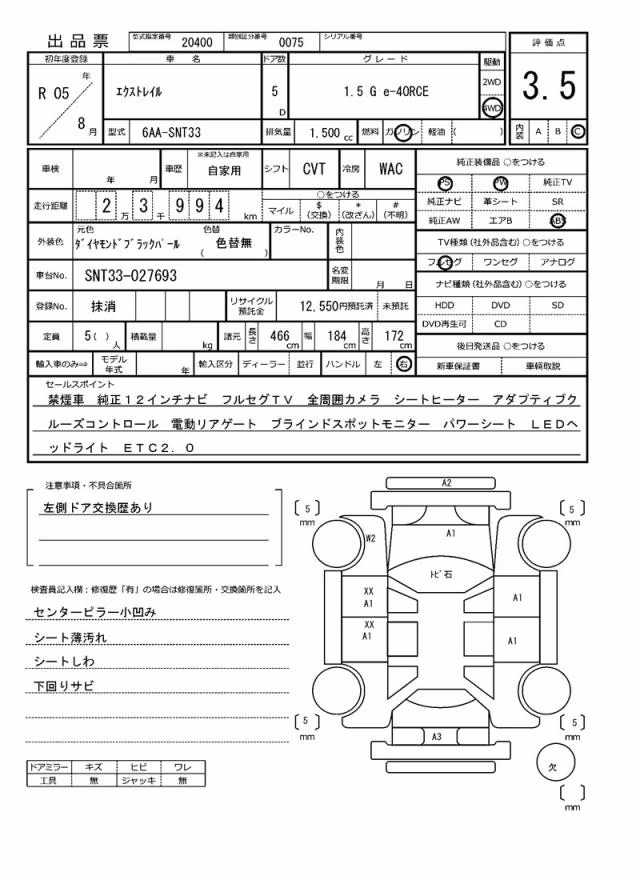 出品票 型式指定番号 20400 類別区分番号 0075 シリアル番号
初年度登録 車名 ドア数 グレード 駆動 評価点
R 05 年 8 月 エクストレイル 5 D 1.5 G e-4ORCE 2WD 4WD 3.5
型式 6AA-SNT33 排気量 1.500 cc 燃料 ガソリン 軽油 ( ) 内装 A B C
車検 年 月 車歴 ※未記入は自家用 自家用 シフト CVT 冷房 WAC
純正装備品 ○をつける
PS PW 純正TV
純正ナビ 革シート SR
純正AW エアB ABS
走行距離 2 3 万 9 9 4 千 km
○をつける
マイル $ (交換) * (改ざん) # (不明)
外装色 元色 ダイヤモンドブラックパール 色替 ( 色替無 ) カラーNo. 内装色
TV種類 (社外品含む) ○をつける
フルセグ ワンセグ アナログ
車台No. SNT33-027693 名変期限 月 日
ナビ種類 (社外品含む) ○をつける
HDD DVD SD
DVD再生可 CD
登録No. 抹消 リサイクル預託金 12,550円預託済 未預託
定員 5 ( ) 人 積載量 kg 諸元 長さ 466 cm 幅 184 cm 高さ 172 cm
後日発送品 ○をつける
新車保証書 車輌取説
輸入車のみ⇒ モデル年式 年 輸入区分 ディーラー 並行 ハンドル 左 右
セールスポイント
禁煙車 純正12インチナビ フルセグTV 全周囲カメラ シートヒーター アダプティブク
ルーズコントロール 電動リアゲート ブラインドスポットモニター パワーシート LEDヘ
ッドライト ETC2.0
注意事項・不具合箇所
左側ドア交換歴あり
検査員記入欄:修復歴「有」の場合は修復箇所・交換箇所を記入
センターピラー小凹み
シート薄汚れ
シートしわ
下回りサビ
ドアミラー キズ ヒビ ワレ
工具 無 ジャッキ 無
A2
5 mm
5 mm
W2
A1
トビ石
XX
A1
A1
XX
A1
A1
5 mm
5 mm
A3
欠
mm